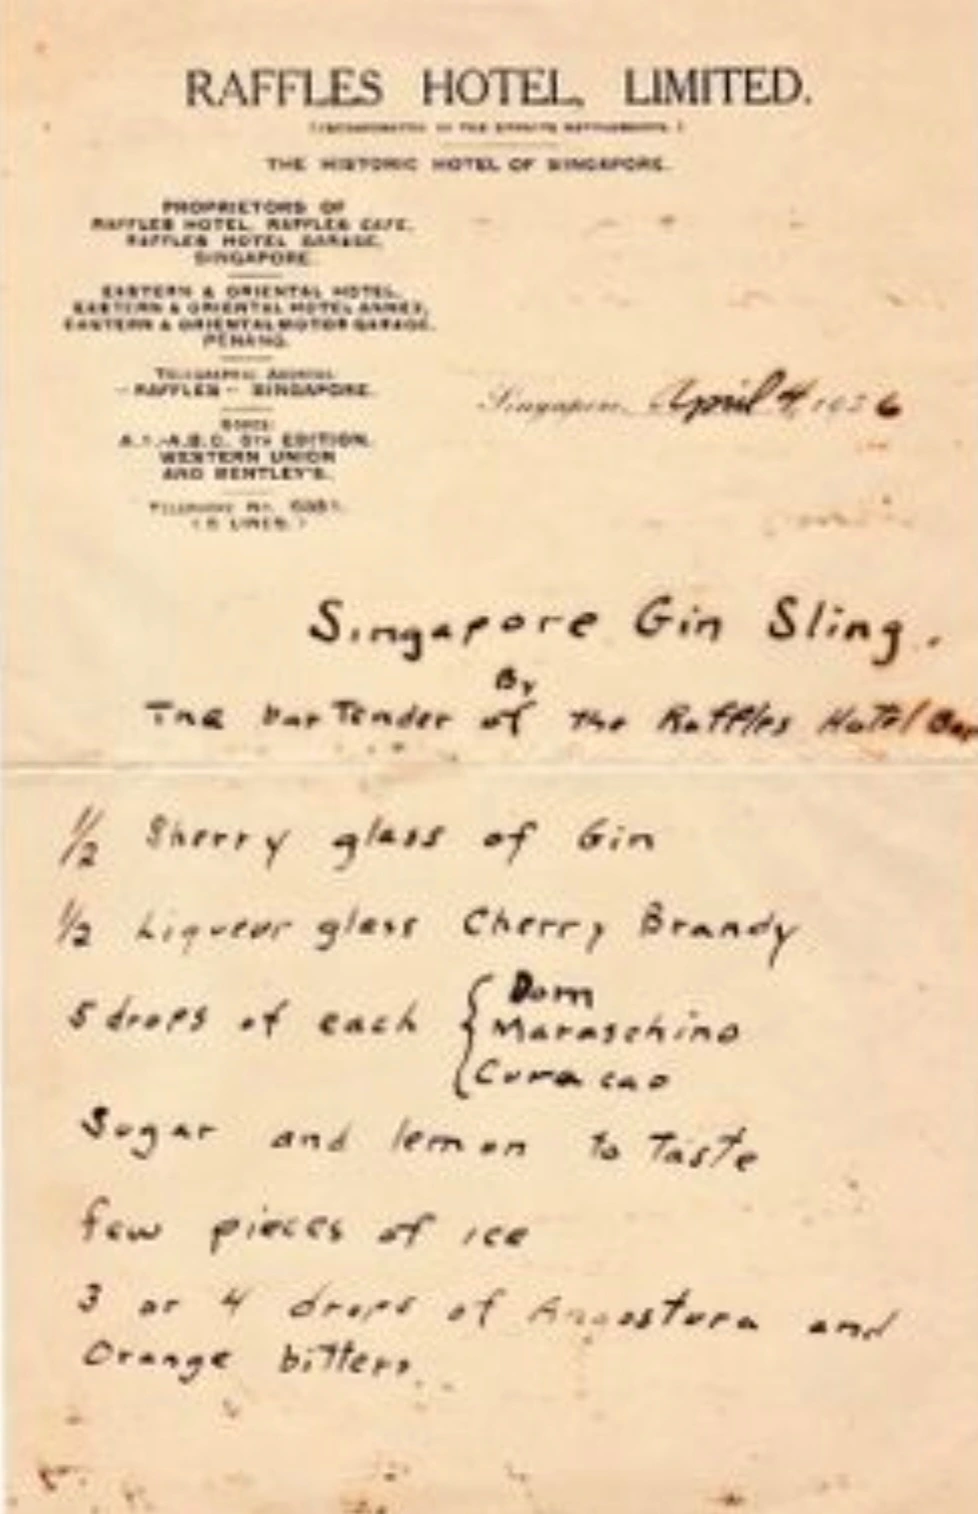 RAFFLES HOTEL, LIMITED.
(INCORPORATED IN THE STRAITS SETTLEMENTS.)
THE HISTORIC HOTEL OF SINGAPORE.
PROPRIETORS OF
RAFFLES HOTEL, RAFFLES CAFE,
RAFFLES HOTEL GARAGE,
SINGAPORE.
EASTERN & ORIENTAL HOTEL,
EASTERN & ORIENTAL HOTEL ANNEX,
EASTERN & ORIENTAL MOTOR GARAGE,
PENANG.
TELEGRAPHIC ADDRESS:
"RAFFLES" SINGAPORE.
CODES:
A.1.-A.B.C. 5TH EDITION,
WESTERN UNION
AND BENTLEY'S.
TELEPHONE No.
(5 LINES.)
Singapore, April 4, 1936
Singapore Gin Sling.
By
The bar Tender of the Raffles Hotel Bar
1/2 Sherry glass of Gin
1/2 Liqueur glass Cherry Brandy
5 drops of each { Dom
Maraschino
Curacao
Sugar and lemon to Taste
few pieces of ice
3 or 4 drops of Angostura and
Orange bitters.